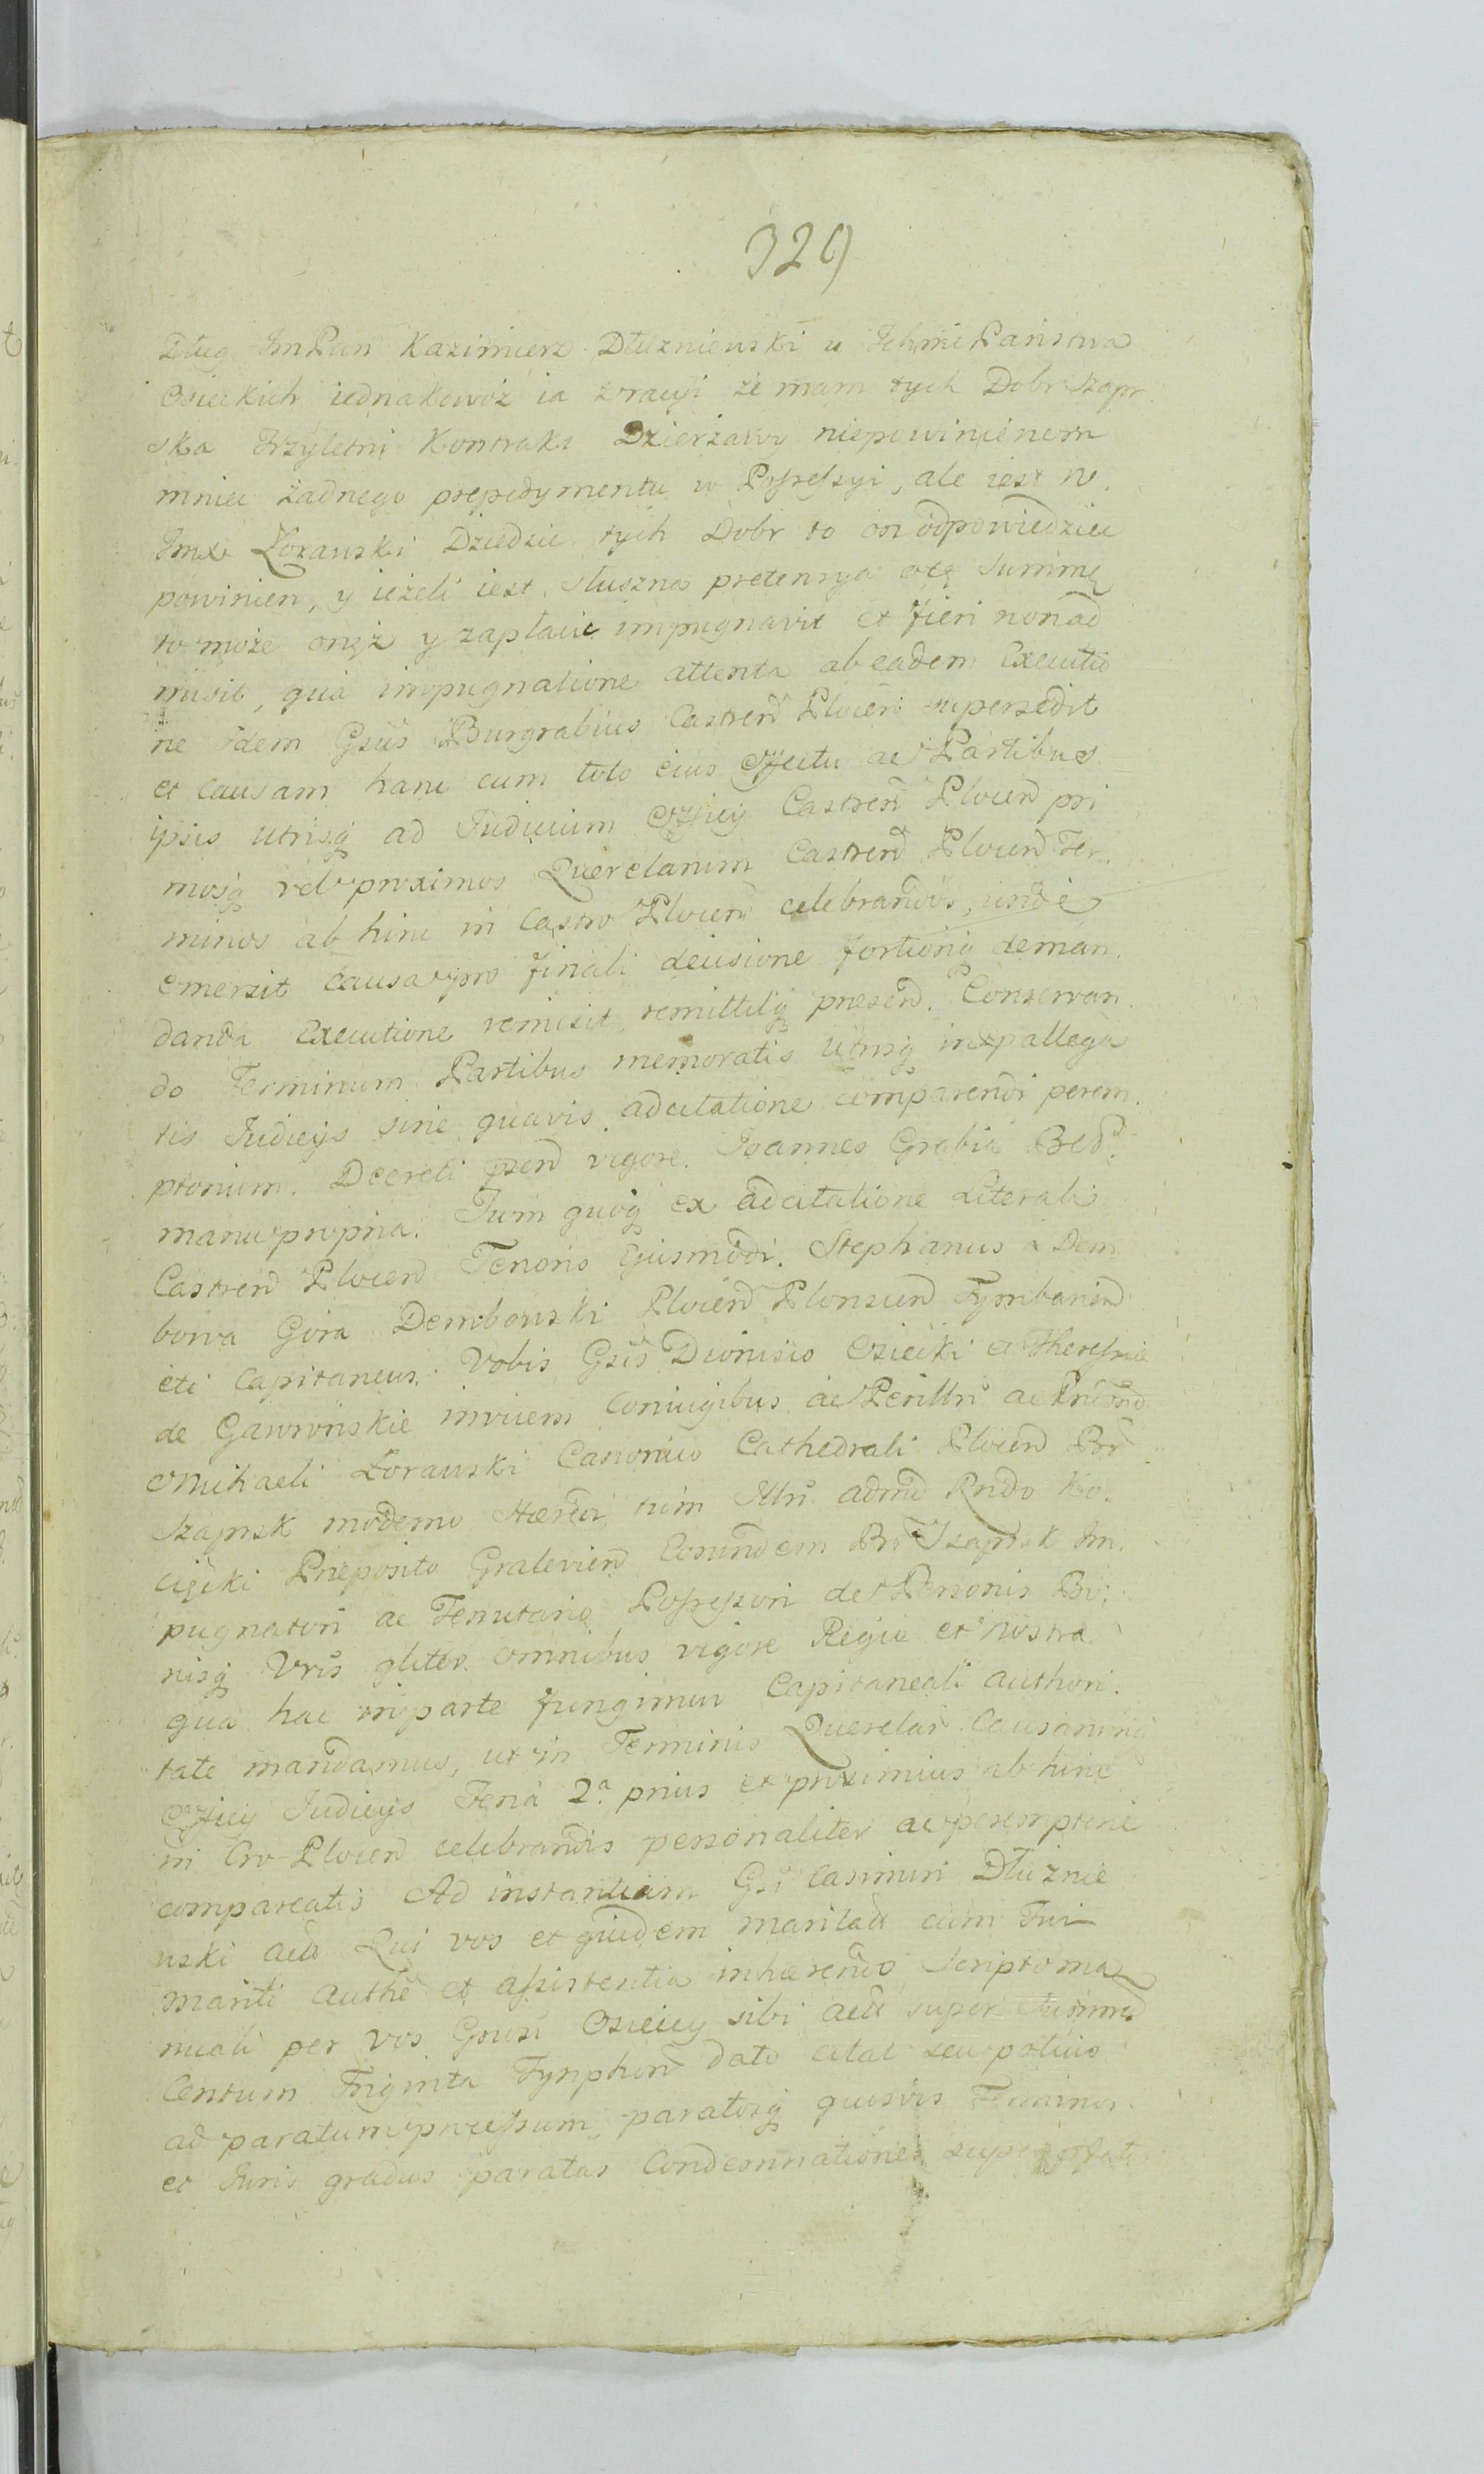 329
Dług ImPan Kazimierz Dłuzniewski u IchmćPaństwa
Osieckich iednakowoż ia zracyi że mam tych Dobr Szapr
ska trzyletni Kontrakt Dzierżawy niepowinienem
mnieć żadnego prepedymentu w Possessyi, ale iest W.
Imć Zorawski Dziedzic tych Dobr to on odpowiedzieć
powinien, y ieżeli iest słuszna pretensya otę Summę
to może onęż y zapłacić impugnavit et fieri nonad
misit, qua impugnatione attenta ab eadem Executio
ne idem Gsus Burgrabius Castren Plocen supersedit
et causam hanc cum toto eius effectu ac Partibus
ipsis utrisq ad Iudicium Officy Castren Plocen pri
mosq vel proximos Querelarum Castren Plocen Ter.
minos ab hinc in Castro Plocen celebrandos, unde
emersit causa pro finali decisione fortioriq deman.
danda Executione remisit remittitq presen. Conservan.
do Terminum Partibus memoratis utrisq in pallega
tis Iudicys sine quavis adcitatione comparendi perem.
ptorium. Decreti psen vigore. Joannes Grabia Bed.
manu propria. Tum quoq ex adcitatione Literali
Castren Plocen Tenoris Eiusmodi. Stephanus a Dem
bowa Gora Dembowski Plocen Plonscen
etc Capitaneus. Vobis Gsis Dionisio Osiecki et Theressiæ
de Gawrońskie invicem coniugibus ac Perillri ac
Michaeli Zorawski Canonico Cathedrali Plocen Bor
Szaprsk moderno Hæredi tum Illri admd Rndo Ko.
cięcki Præposito Gralevien Eorundem Bor Szaprsk Im.
pugnatori ac Tenutario Possessori de Personis Bo.
nisq Vris gliter omnibus vigore Regia et nostra
qua hac in parte fungimur Capitaneali authori.
tate mandamus, ut in Terminis Querelar Causarumq
Officy Iudicys Feria 2a prius et proximius ab hinc
in Cro Plocen celebrandis personaliter ac peremptorie
compareatis Ad instantiam Gsi Casimiri Dłuznie
wski Act Qui vos et quidem maritatã cum Tui
mariti authe et assistentia inhærendo Scripto ma
nuali per vos Gsusi Osieccy sibi Act super summã
Centum Triginta Tynphon dato citat seu potius
ad paratum processum, paratosq quosvis Terminos
et Iuris gradus paratas Condemnationes super